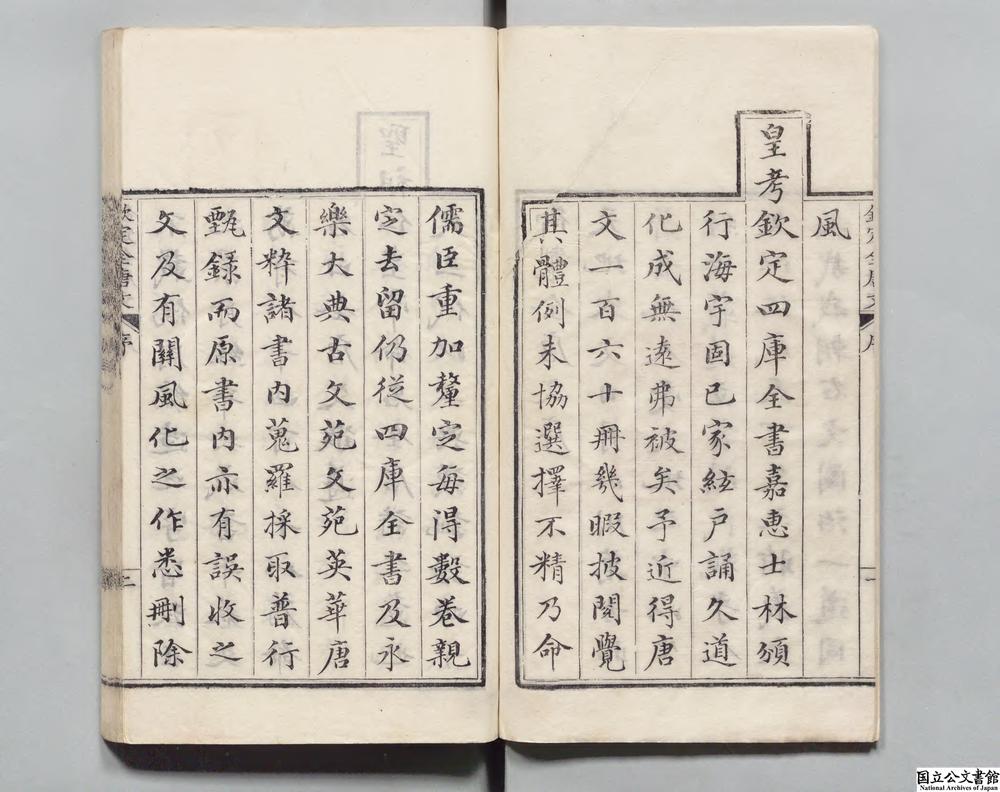 風
皇考欽定四庫全書嘉惠士林頒
行海宇固已家絃戶誦久道
化成無遠弗被矣予近得唐
文一百六十冊幾暇披閱覺
其體例未協選擇不精乃命
儒臣重加釐定每得數卷親
定去留仍從四庫全書及永
樂大典古文苑文苑英華唐
文粹諸書內蒐羅採取普行
甄錄而原書內亦有誤收之
文及有關風化之作悉刪除
欽定全唐文
序
二
国立公文書館
National Archives of Japan